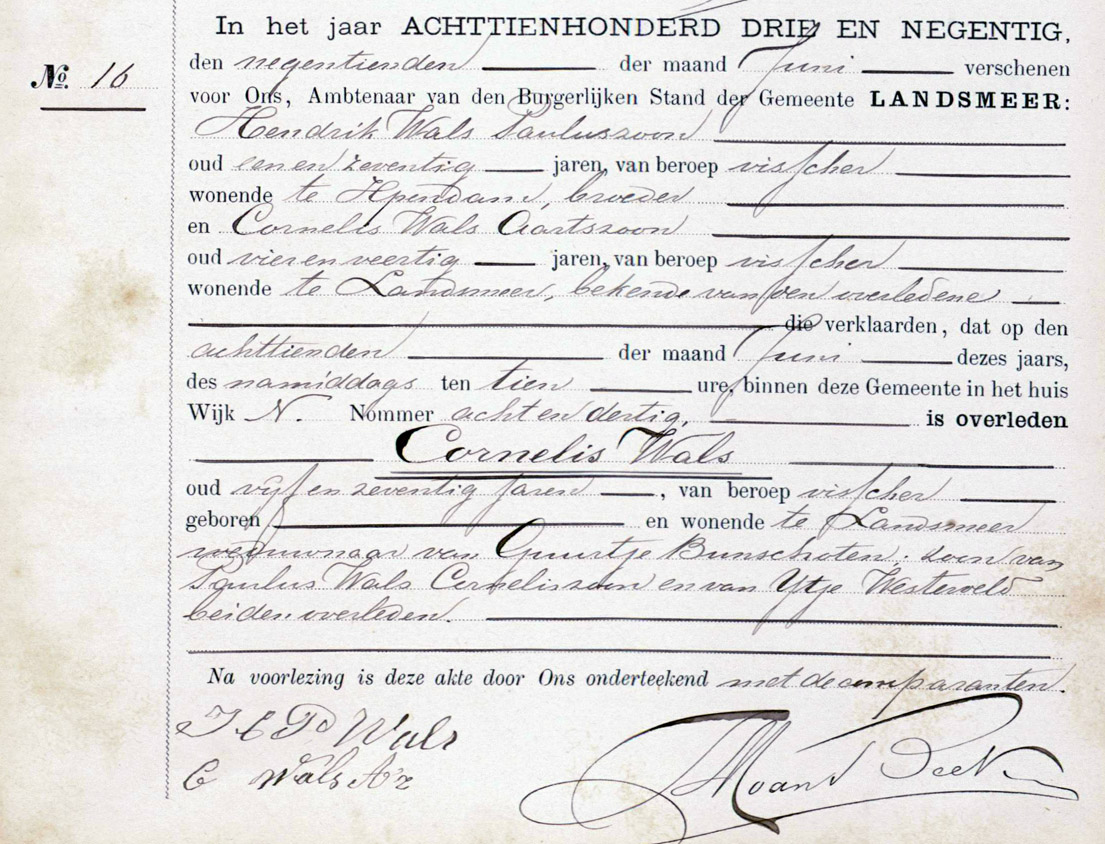 In het jaar ACHTTIENHONDERD DRIE EN NEGENTIG,
den negentienden der maand Juni verschenen
No. 16
voor Ons, Ambtenaar van den Burgerlijken Stand der Gemeente LANDSMEER:
Hendrik Wals Pauluszoon
oud een en zeventig jaren, van beroep visscher
wonende te Ilpendam, broeder
en Cornelis Wals Aartszoon
oud vier en veertig jaren, van beroep visscher
wonende te Landsmeer, bekende van den overledene
die verklaarden, dat op den
achttienden der maand Juni dezes jaars,
des namiddags ten tien ure, binnen deze Gemeente in het huis
Wijk N. Nommer acht en dertig, is overleden
Cornelis Wals
oud vijf en zeventig jaren, van beroep visscher
geboren en wonende te Landsmeer
weduwnaar van Guurtje Bunschoten, zoon van
Paulus Wals Corneliszoon en van Ytje Westerveld
beiden overleden.
Na voorlezing is deze akte door Ons onderteekend met de comparanten.
Wals
C Wals Az